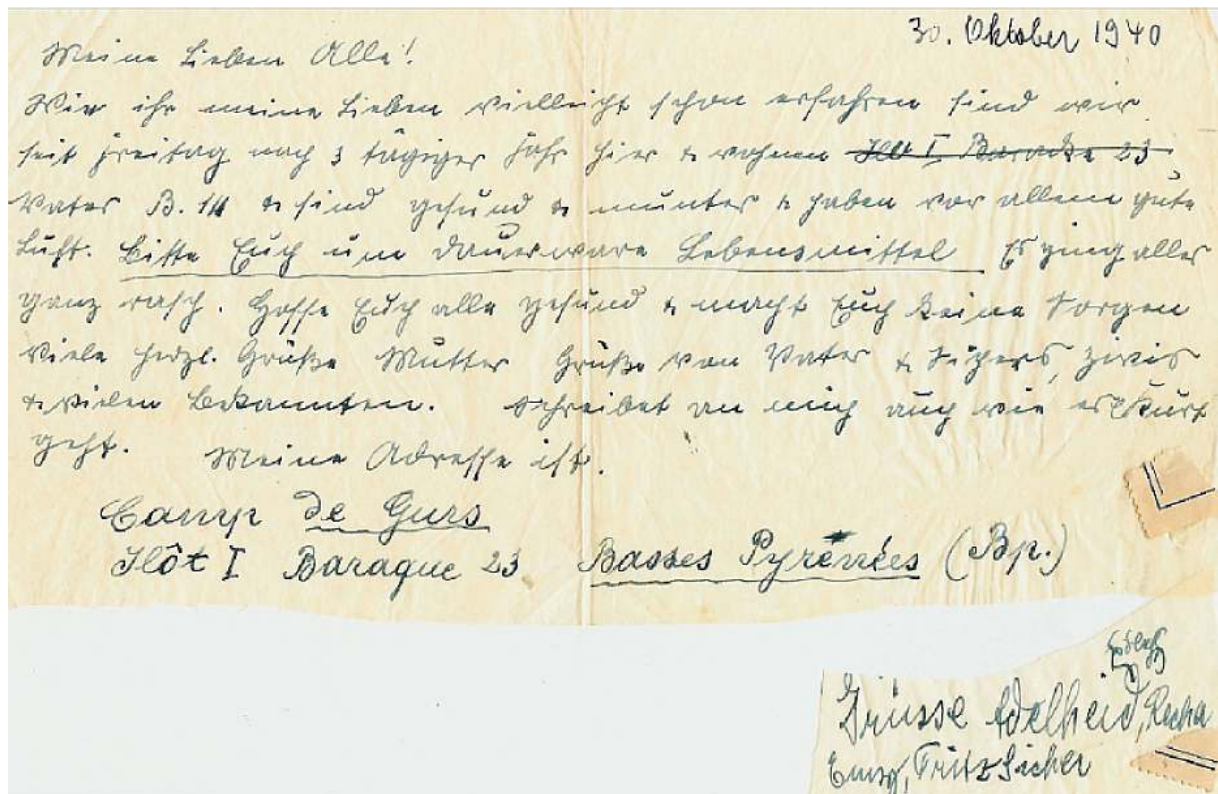 30. Oktober 1940
Meine Lieben Alle!
Wie ihr meine Lieben vielleicht schon erfahren sind wir
seit Freitag nach 3 tägiger Fahr hier & wohnen Ilot I Baracke 23
Vater B. 14 & sind gesund & munter & haben vor allem gute
Luft. Bitte Euch um Dauerware Lebensmittel Es ging alles
ganz rasch. Hoffe Euch alle gesund & macht Euch keine Sorgen
Viele herzl. Grüße Mutter Grüße von Vater &
& vielen Bekannten. Schreibet an mich auch wie es Kurt
geht. Meine Adresse ist.
Camp de Gurs
Ilôt I Baraque 23 Basses Pyrénées (Bp.)
Grüsse Adelheid, Recha
Fritz Sicher